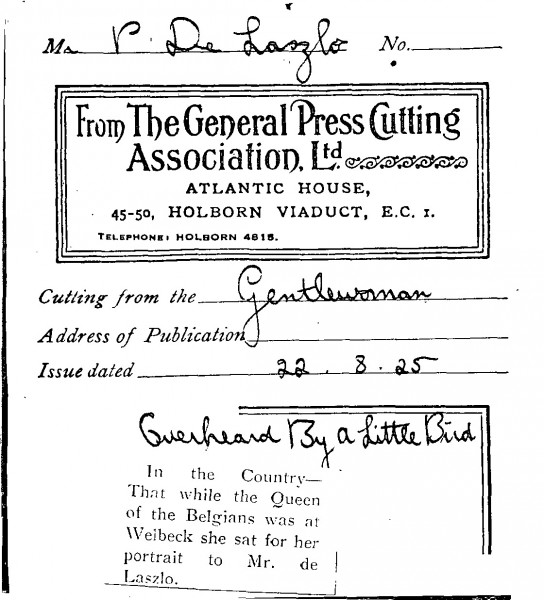 Mr P De Laszlo No.
From The General Press Cutting
Association, Ltd.
ATLANTIC HOUSE,
45-50, HOLBORN VIADUCT, E.C. 1.
TELEPHONE: HOLBORN 4815.
Cutting from the Gentlewoman
Address of Publication
Issue dated 22. 8. 25
Overheard By a Little Bird
In the Country—
That while the Queen
of the Belgians was at
Welbeck she sat for her
portrait to Mr. de
Laszlo.